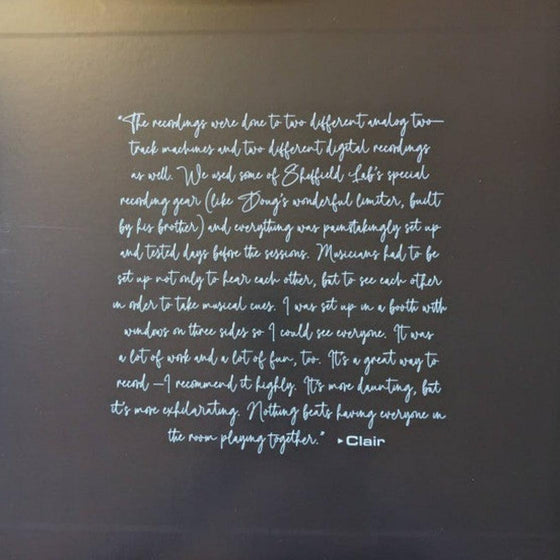 "The recordings were done to two different analog two-
track machines and two different digital recordings
as well. We used some of Sheffield Lab's special
recording gear (like Doug's wonderful limiter, built
by his brother) and everything was painstakingly set up
and tested days before the sessions. Musicians had to be
set up not only to hear each other, but to see each other
in order to take musical cues. I was set up in a booth with
windows on three sides so I could see everyone. It was
a lot of work and a lot of fun, too. It's a great way to
record – I recommend it highly. It's more daunting, but
it's more exhilarating. Nothing beats having everyone in
the room playing together." ▸Clair